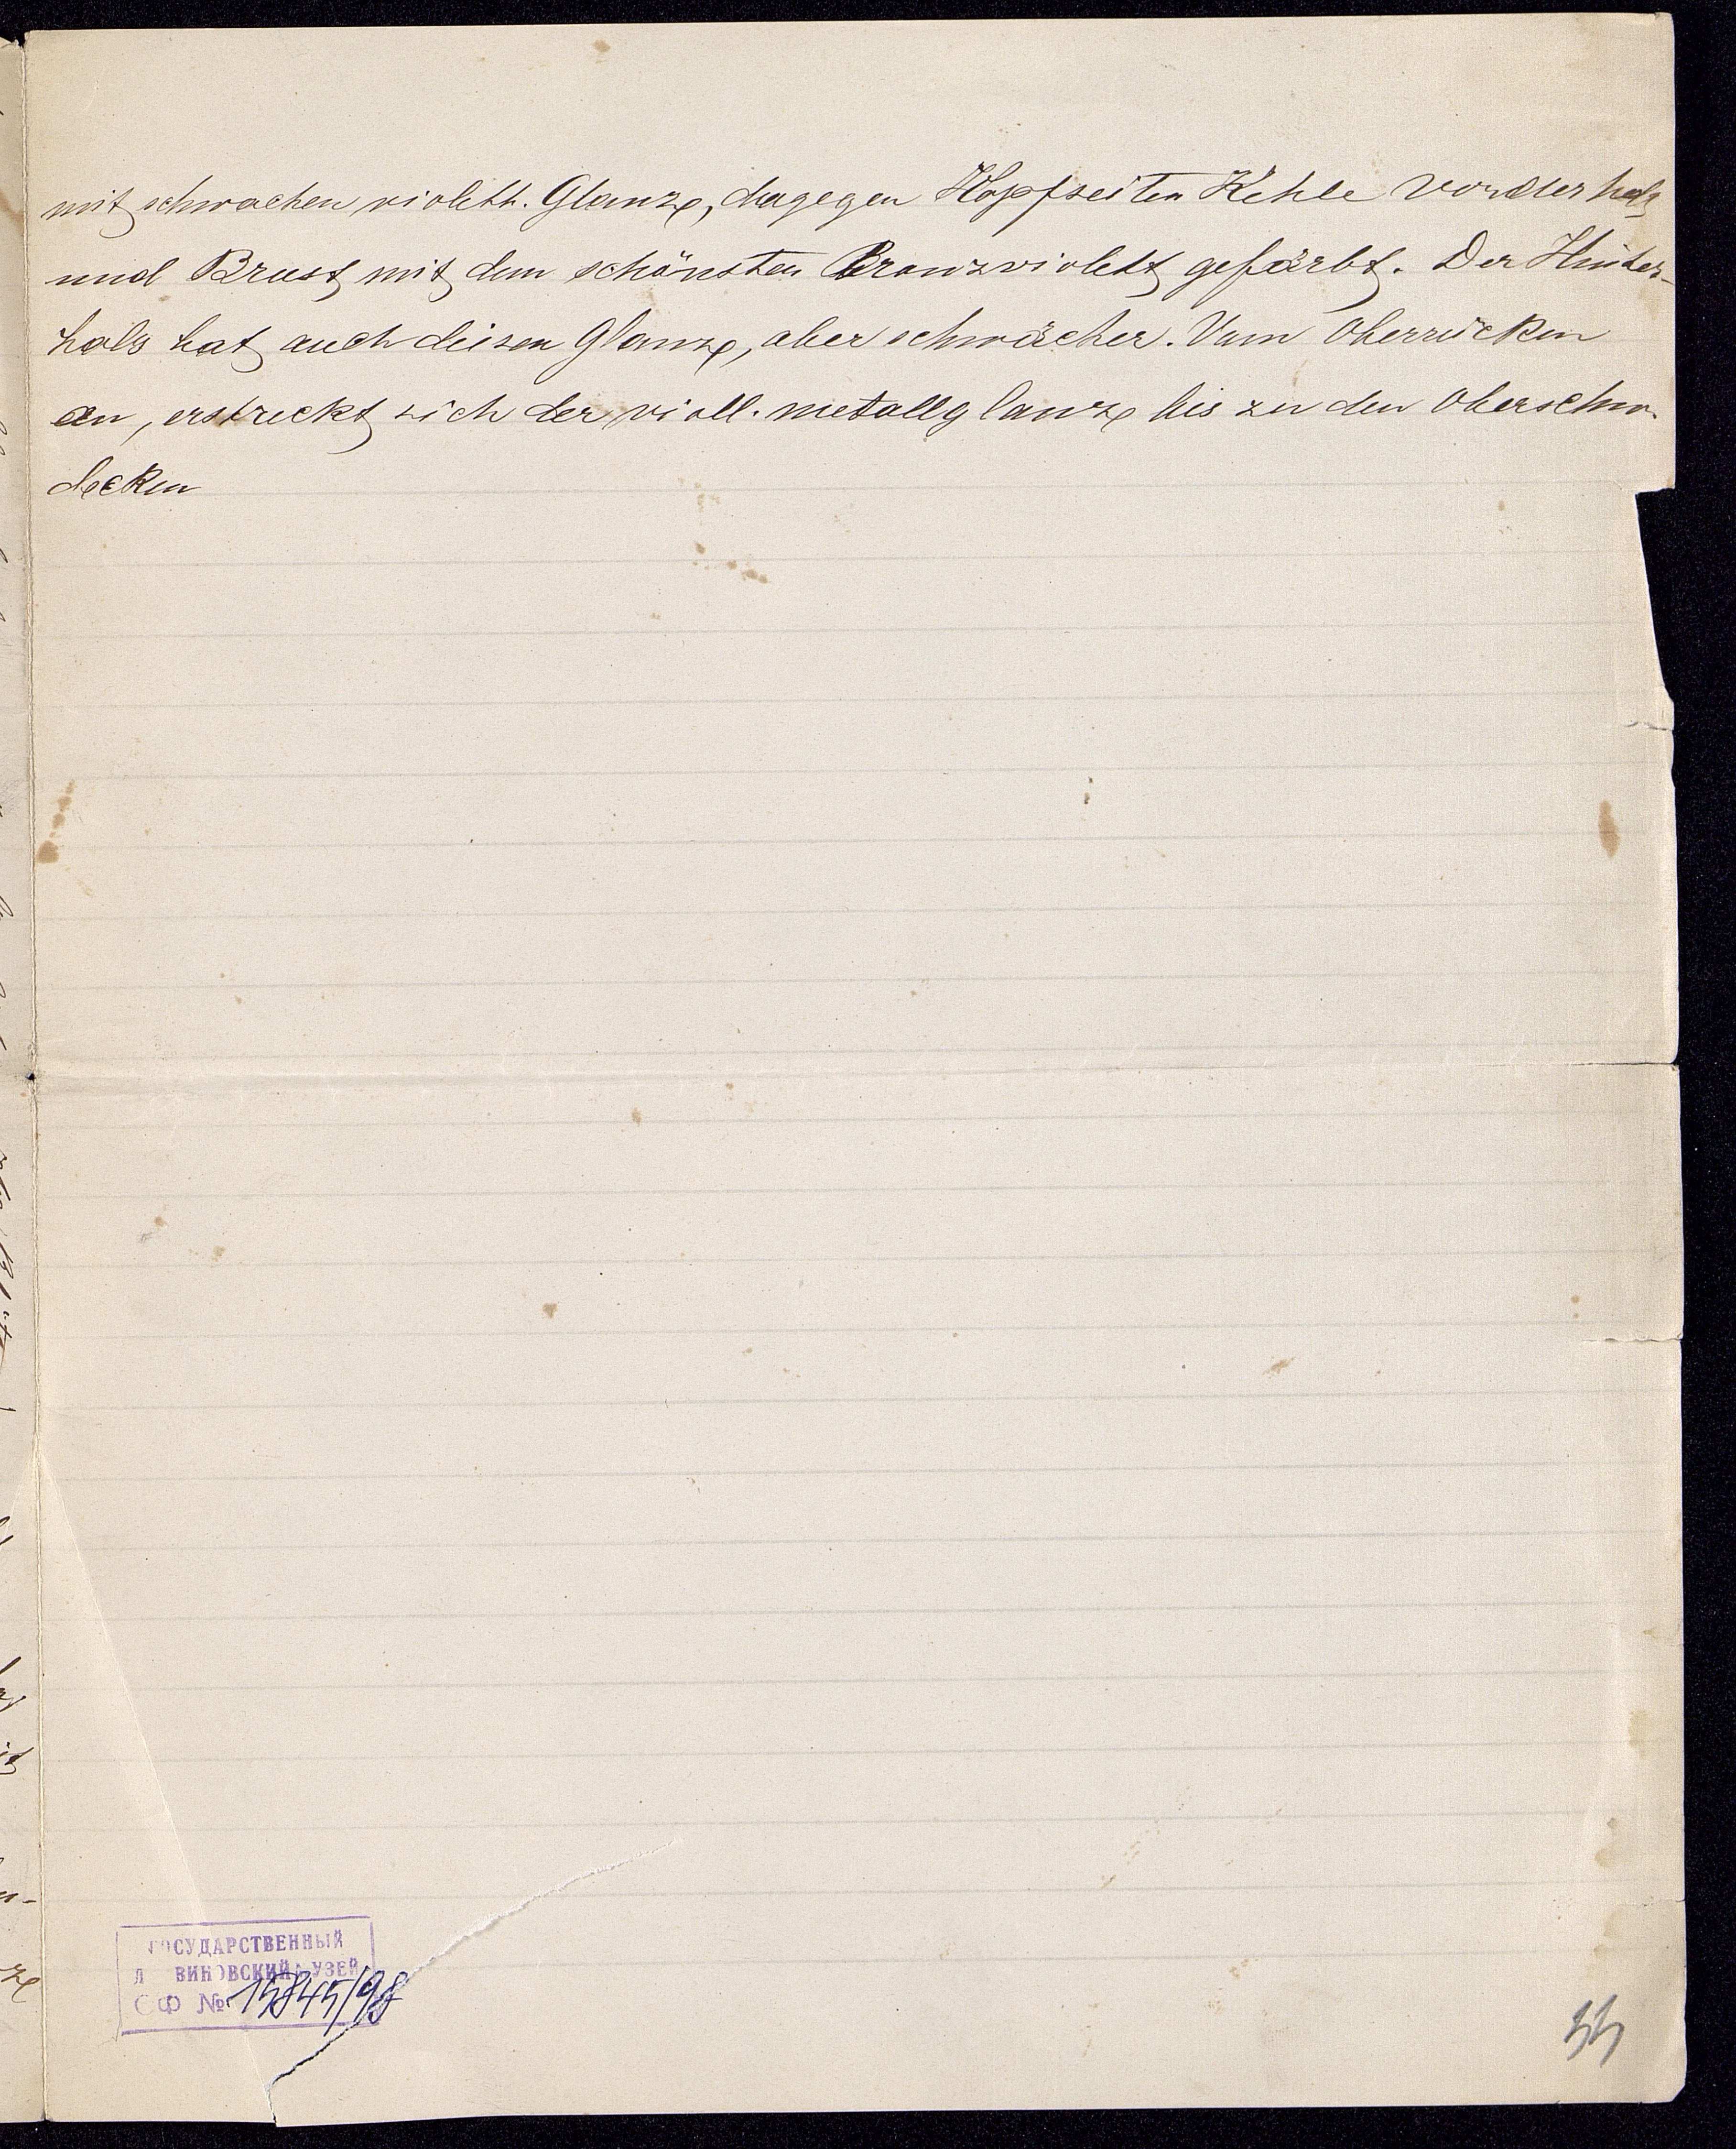 mit schwachen violett. Glanze, dagegen Kopfseiten Kehle Vorderhals
und Brust mit dem schönsten Bronzviolett gefärbt. Der Hinter-
hals hat auch diesen Glanze, aber schwächer. Vom Oberrücken
an, erstreckt sich der violl. metallglanze bis zu den Oberschw.
decken
ГОСУДАРСТВЕННЫЙ
ВИНОВСКИЙ УЗЕЙ
СФ № 15845/98